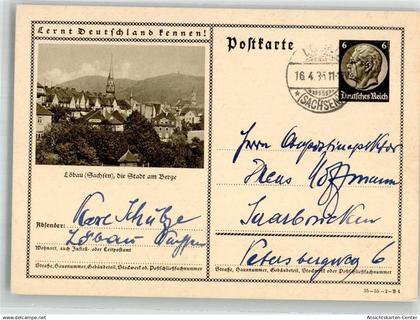 Lernt Deutschland kennen!
Postkarte
6 6
Deutsches Reich
16.4.36.11-
(SACHSEN)
Löbau (Sachsen), die Stadt am Berge
Absender: Karl Schulze
Löbau Sachsen
Wohnort, auch Zustell- oder Leitpostamt
Straße, Hausnummer, Gebäudeteil, Stockwerk od. Postschließfachnummer
Herrn
Hans Hoffmann
Saarbrücken
Petersbergweg 6
Straße, Hausnummer, Gebäudeteil, Stockwerk oder Postschließfachnummer
Ansichtskarten-Center